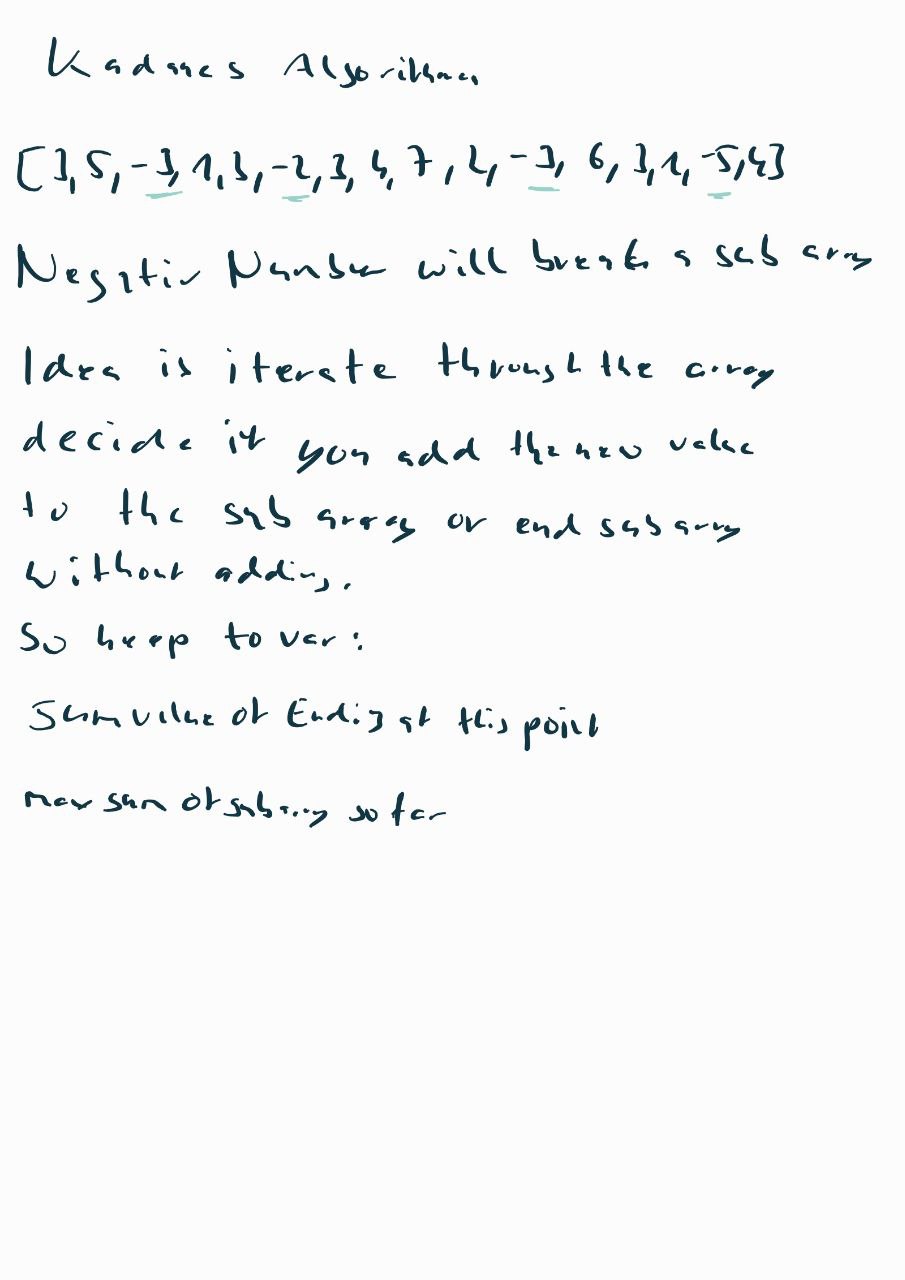 Kadanes Algorithmn
[3, 5, -3, 1, 3, -2, 3, 4, 7, 2, -3, 6, 3, 1, -5, 4]
Negativ Number will break a sub array
Idea is iterate through the array
decide if you add the new value
to the sub array or end sub array
without adding.
So keep to var:
Sum value of Ending at this point
max sum of subarray so far